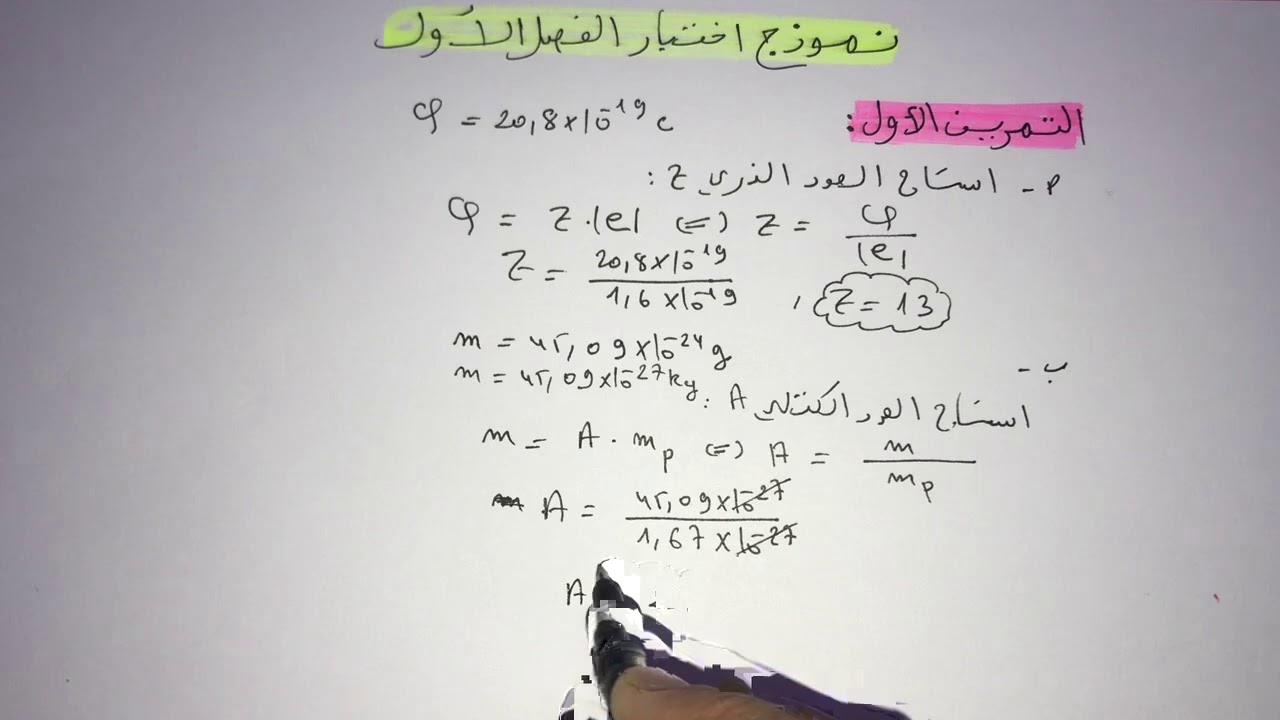 نموذج اختبار الفصل الأول
التمرين الأول:
φ = 20,8×10⁻¹⁹ c
P - استنتاج العدد الذري Z :
φ = Z.|e| (=) Z = φ / |e|
Z = 20,8×10⁻¹⁹ / 1,6×10⁻¹⁹ , Z = 13
ب -
m = 45,09×10⁻²⁴ g
m = 45,09×10⁻²⁷ kg
استنتاج العدد الكتلي A :
m = A . mp (=) A = m / mp
A = 45,09×10⁻²⁷ / 1,67×10⁻²⁷
A